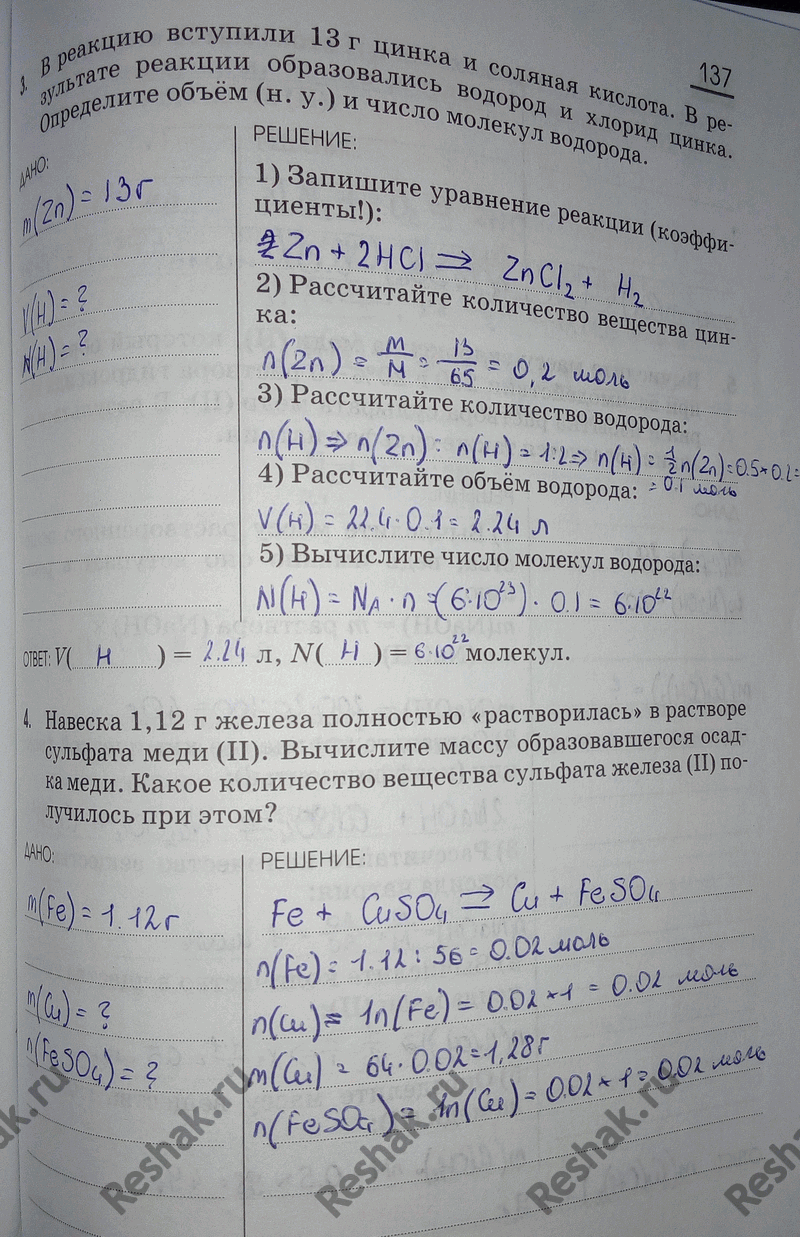 137
3. В реакцию вступили 13 г цинка и соляная кислота. В ре-
зультате реакции образовались водород и хлорид цинка.
Определите объём (н. у.) и число молекул водорода.
ДАНО:
m(Zn) = 13г
V(H) = ?
N(H) = ?
РЕШЕНИЕ:
1) Запишите уравнение реакции (коэффи-
циенты!):
Zn + 2HCl => ZnCl₂ + H₂
2) Рассчитайте количество вещества цин-
ка:
n(Zn) = m/M = 13/65 = 0,2 моль
3) Рассчитайте количество водорода:
n(H) => n(Zn) : n(H) = 1:2 => n(H) = 1/2 n(Zn) = 0.5*0.2=
= 0.1 моль
4) Рассчитайте объём водорода:
V(H) = 22.4·0.1 = 2.24 л
5) Вычислите число молекул водорода:
N(H) = Nᴀ · n = (6·10²³) · 0.1 = 6·10²²
ОТВЕТ: V( H ) = 2.24 л, N( H ) = 6·10²² молекул.
4. Навеска 1,12 г железа полностью «растворилась» в растворе
сульфата меди (II). Вычислите массу образовавшегося осад-
ка меди. Какое количество вещества сульфата железа (II) по-
лучилось при этом?
ДАНО:
m(Fe) = 1.12г
m(Cu) = ?
n(FeSO₄) = ?
РЕШЕНИЕ:
Fe + CuSO₄ => Cu + FeSO₄
n(Fe) = 1.12 : 56 = 0.02 моль
n(Cu) = 1n(Fe) = 0.02*1 = 0.02 моль
m(Cu) = 64·0.02 = 1,28г
n(FeSO₄) = 1n(Cu) = 0.02*1 = 0.02 моль
Reshak.ru
Reshak.ru
Reshak.ru
Reshak.ru
Reshak.ru